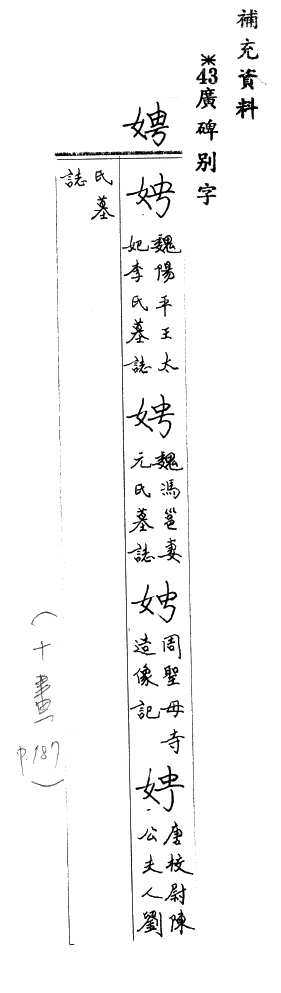 補充資料
※43廣碑別字
娉
娉
魏陽平王太
妃李氏墓誌
娉
魏馮邕妻
元氏墓誌
娉
周聖母寺
造像記
娉
唐校尉陳
公夫人劉
氏墓
誌
(十畫
p.187)